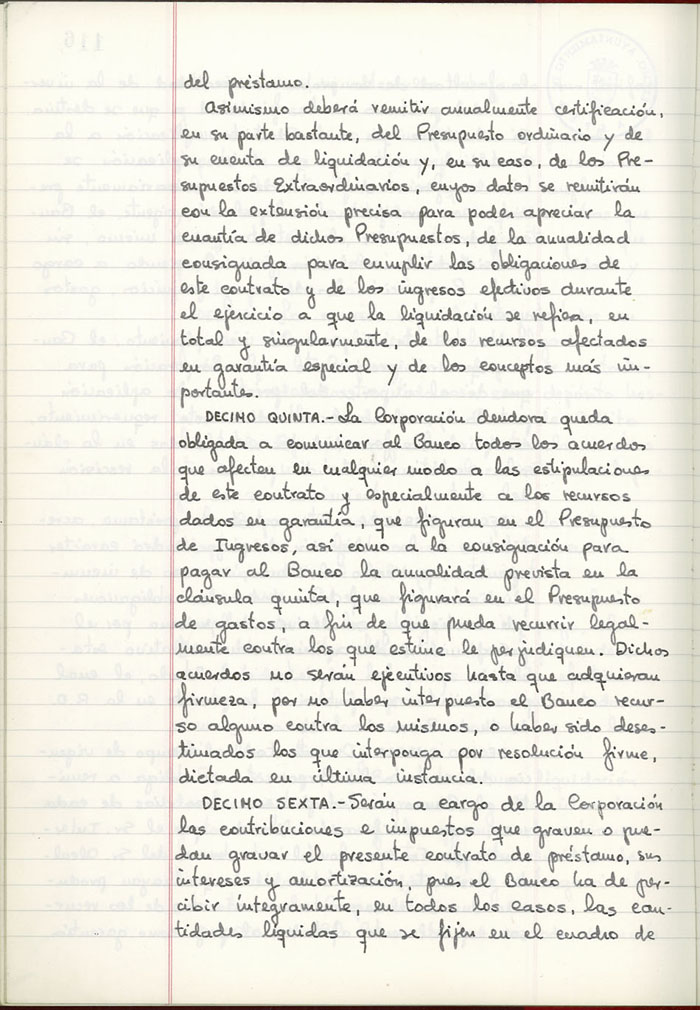 del préstamo.
Asimismo deberá remitir anualmente certificación,
en su parte bastante, del Presupuesto ordinario y de
su cuenta de liquidación y, en su caso, de los Pre-
supuestos Extraordinarios, cuyos datos se remitirán
con la extensión precisa para poder apreciar la
cuantía de dichos Presupuestos, de la anualidad
consignada para cumplir las obligaciones de
este contrato y de los ingresos efectivos durante
el ejercicio a que la liquidación se refiera, en
total y singularmente, de los recursos afectados
en garantía especial y de los conceptos más im-
portantes.
DECIMO QUINTA.- La Corporación deudora queda
obligada a comunicar al Banco todos los acuerdos
que afecten en cualquier modo a las estipulaciones
de este contrato y especialmente a los recursos
dados en garantía, que figuran en el Presupuesto
de Ingresos, así como a la consignación para
pagar al Banco la anualidad prevista en la
cláusula quinta, que figurará en el Presupuesto
de gastos, a fin de que pueda recurrir legal-
mente contra los que estime le perjudiquen. Dichos
acuerdos no serán ejecutivos hasta que adquieran
firmeza, por no haber interpuesto el Banco recur-
so alguno contra los mismos, o haber sido deses-
timados los que interponga por resolución firme,
dictada en última instancia.
DECIMO SEXTA.- Serán a cargo de la Corporación
las contribuciones e impuestos que graven o pue-
dan gravar el presente contrato de préstamo, sus
intereses y amortización, pues el Banco ha de per-
cibir íntegramente, en todos los casos, las can-
tidades líquidas que se fijen en el cuadro de